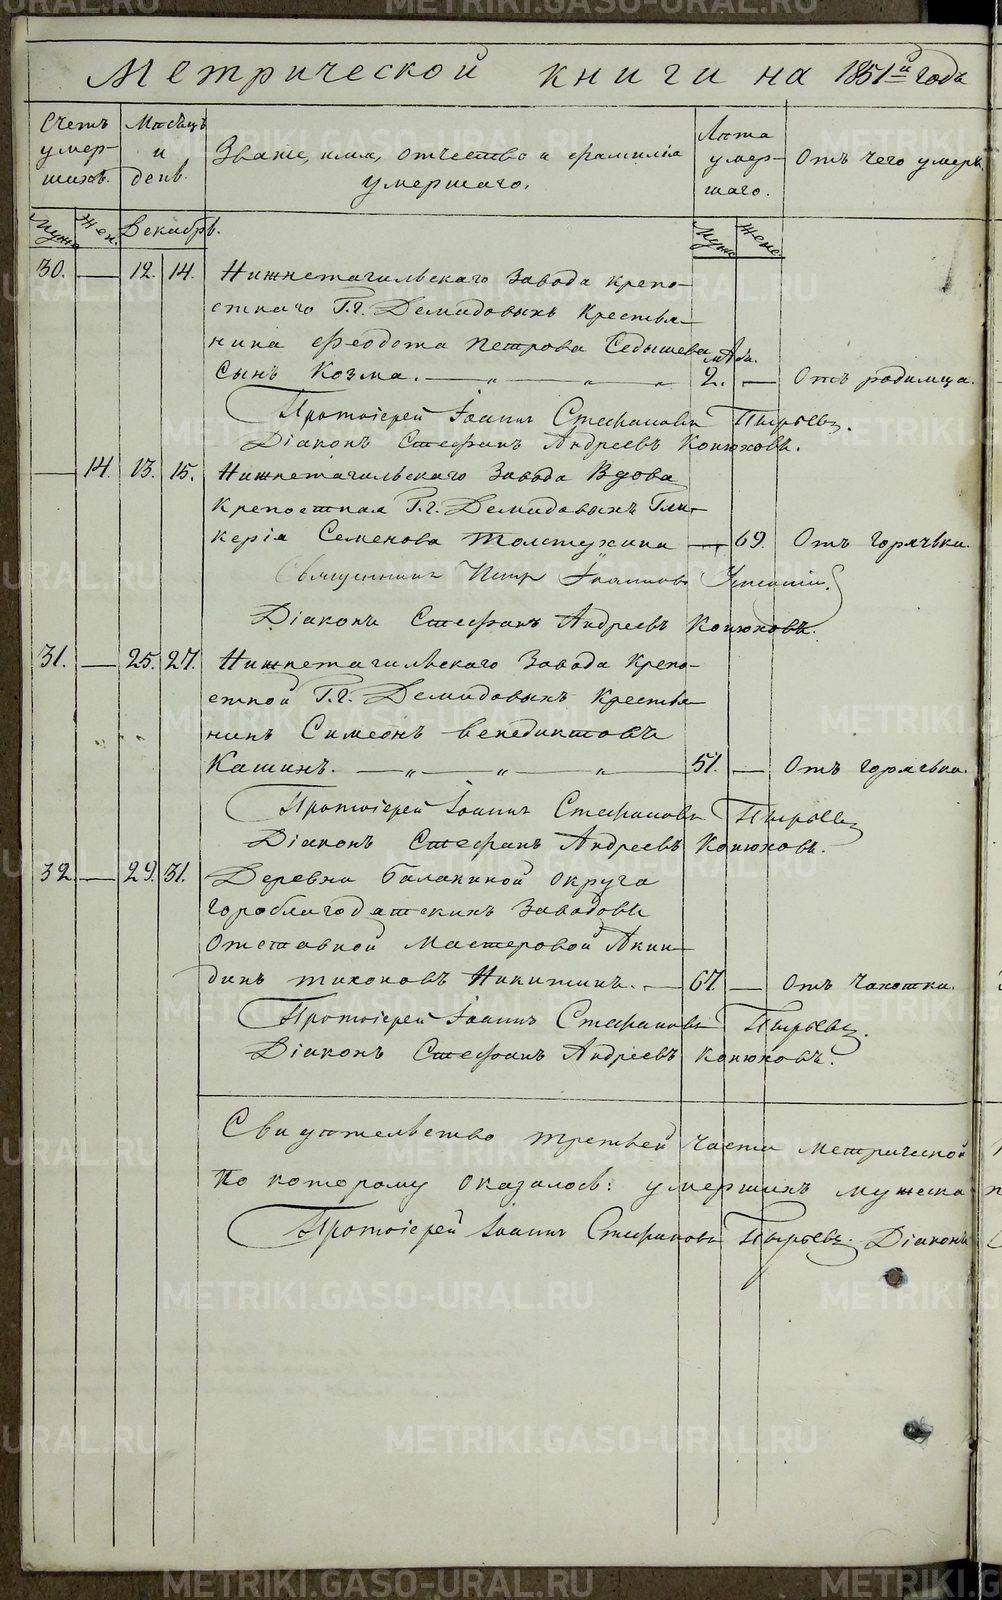 Метрической книги на 1851й годъ
Счетъ умер-шихъ.
Мѣсяцъ и день.
Званіе, имя, отчество и фамилія умершаго.
Лѣта умер-шаго.
Отъ чего умеръ.
Муж. Жен. Декабрь. Муж. Жен.
30. — 12. 14. Нижнетагильскаго Завода крепо-
стнаго Г.г. Демидовыхъ Крестья-
нина Феодота Петрова Седышева
сынъ Козма. — „ — „ — „ 2. — Отъ родимца.
Протоіерей Іоаннъ Стефановъ Пырьевъ.
Діаконъ Стефанъ Андреевъ Конюховъ.
— 14. 13. 15. Нижнетагильскаго Завода Вдова
Крепостная Г.г. Демидовыхъ Гли-
керія Семенова Толстухина — 69. Отъ горячьки.
Священникъ Петръ Іоанновъ
Діаконъ Стефанъ Андреевъ Конюховъ.
31. — 25. 27. Нижнетагильскаго Завода Крепо-
стной Г.г. Демидовыхъ Крестья-
нинъ Симеонъ Венедиктовъ
Кашинъ. — „ — „ — „ — 51. — Отъ горячьки.
Протоіерей Іоаннъ Стефановъ Пырьевъ
Діаконъ Стефанъ Андреевъ Конюховъ.
32. — 29. 31. Деревни Балакиной округа
Гороблагодатскихъ Заводовъ
Отставной Мастеровой Акин-
динъ Тихоновъ Никитинъ. — 67. — Отъ Чахотки.
Протоіерей Іоаннъ Стефановъ Пырьевъ.
Діаконъ Стефанъ Андреевъ Конюховъ.
Свидѣтельство третьей части метрической
По которому оказалось: умершихъ мужеска
Протоіерей Іоаннъ Стефановъ Пырьевъ. Діаконъ
METRIKI.GASO-URAL.RU